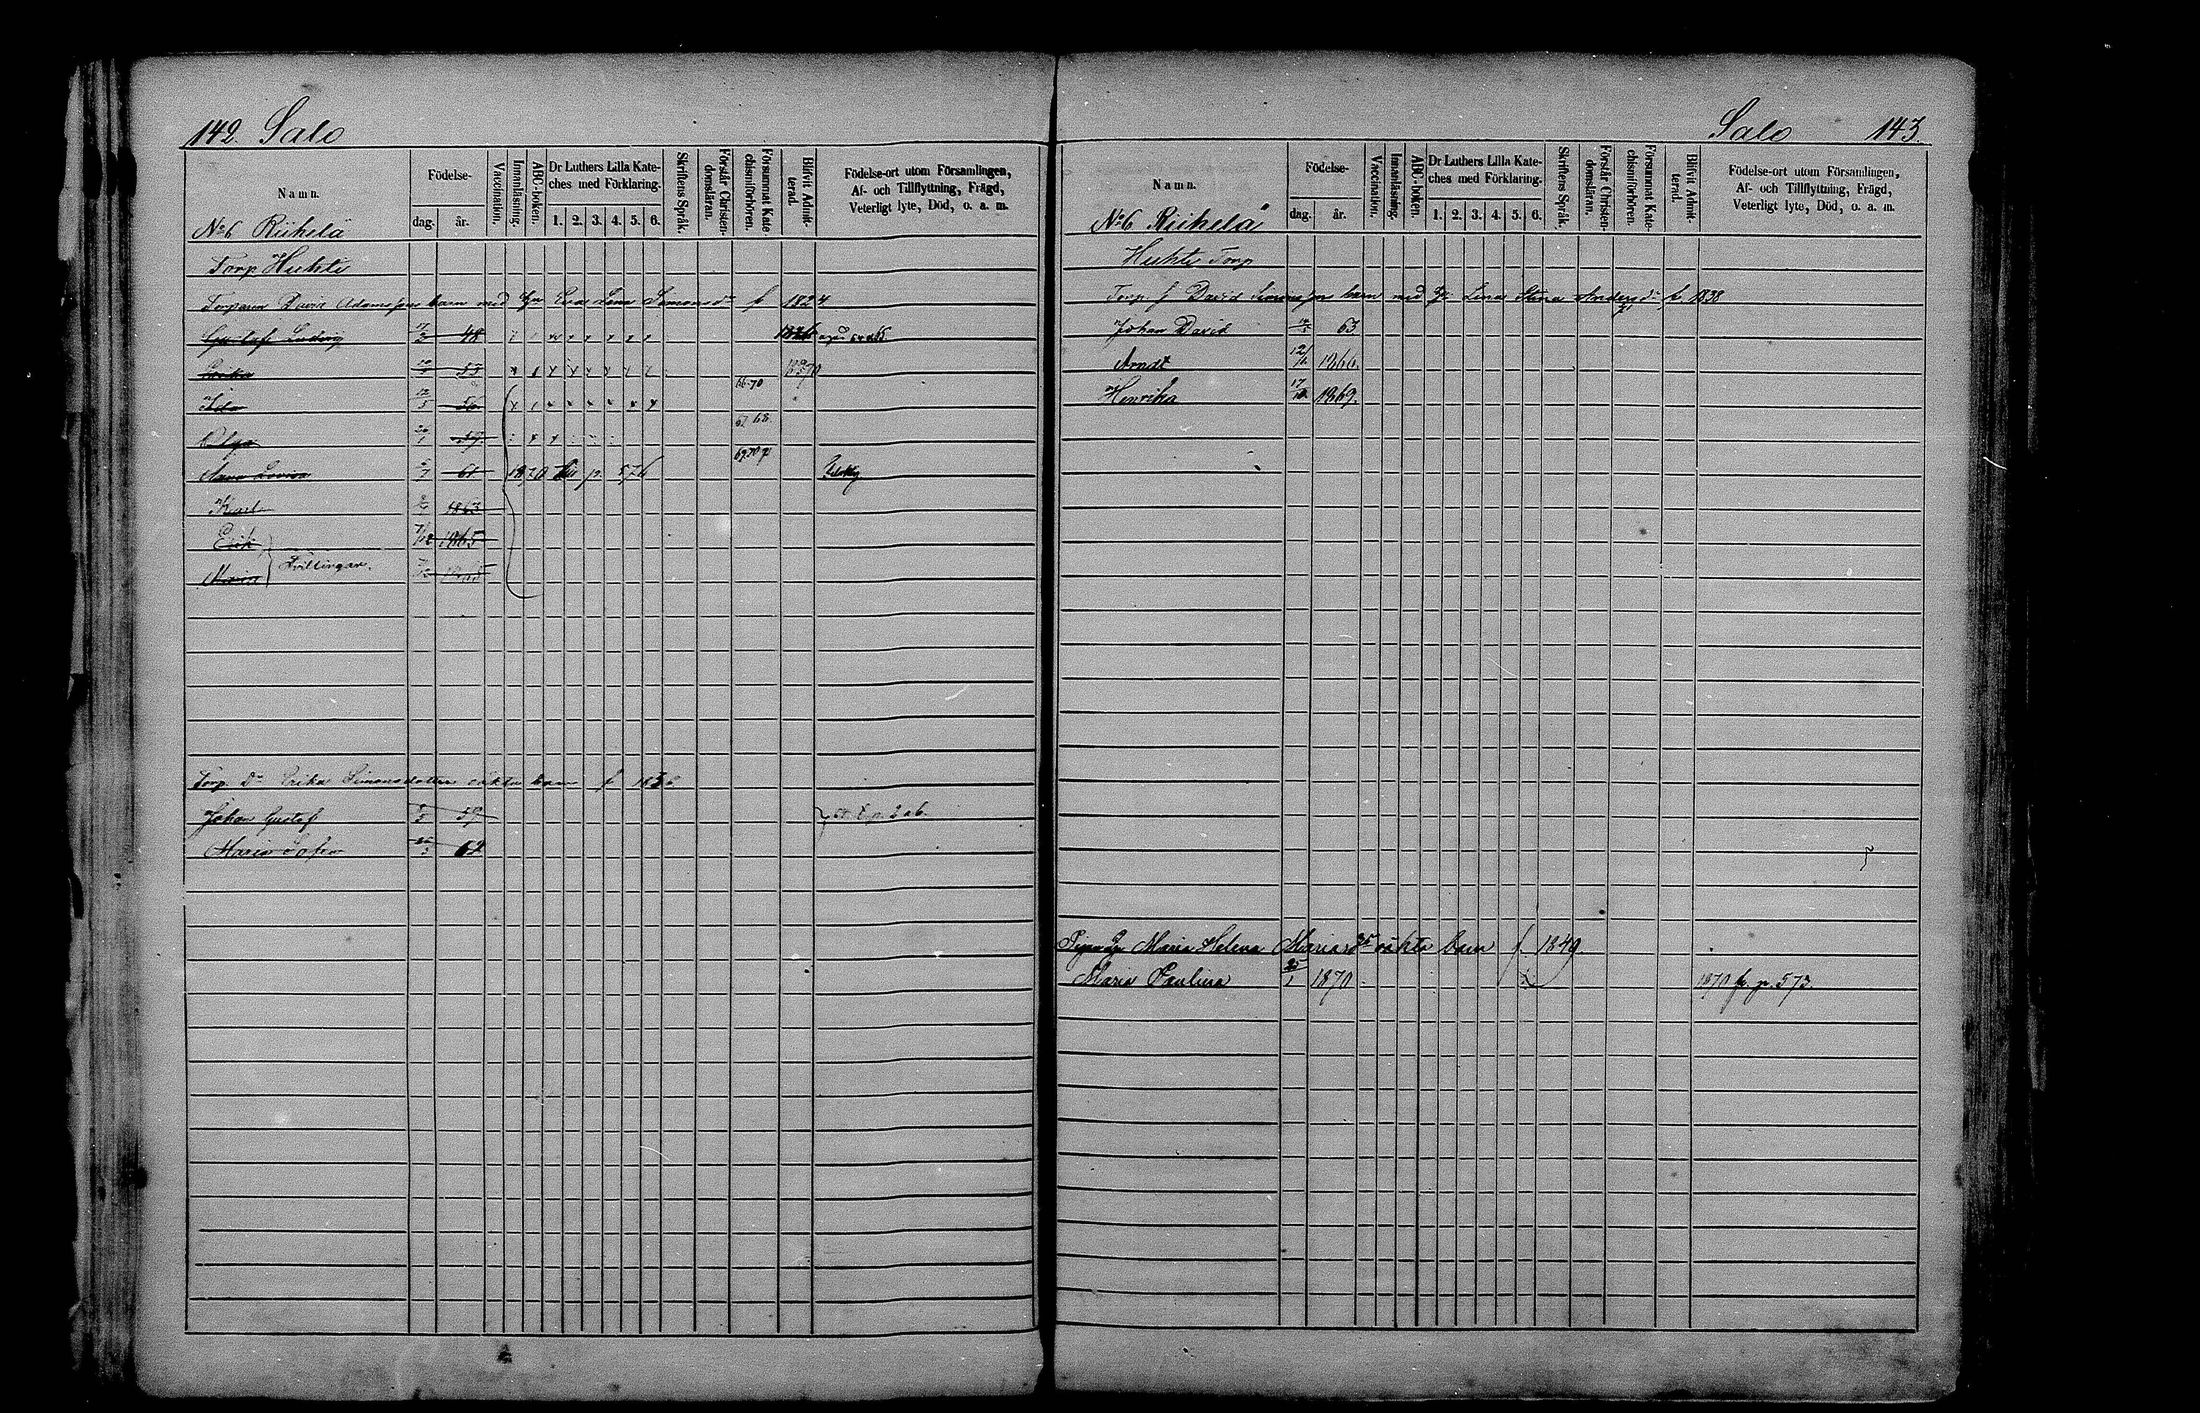 142. Salo
Namn.
Födelse-
dag. år.
Vaccination.
Innanläsning.
ABC-boken.
Dr Luthers Lilla Kate-
ches med Förklaring.
1. 2. 3. 4. 5. 6.
Skriftens Språk.
Förstår Christen-
domsläran.
Försummat Kate-
chismiförhören.
Blifvit Admit-
terad.
Födelse-ort utom Församlingen,
Af- och Tillflyttning, Frägd,
Veterligt lyte, Död, o. a. m.
No 6 Riihelä
Torp Huhti
Torparen David Adamssons barn med Lena Simonsdr f 1824
Gustaf Ludvig 48
53 1870
Ida 12/5 56 66-70
Olga 59 67 68
Anna Lovisa 61 1870 p. 576 69 70
Karl 1863
Erik 7/12 1865
Tvillingar.
Maria 7/12 1865
Torp. Dr Erika Simonsdotters oäkta barn f 1836
Johan Gustaf 59 p. 206.
Maria Sofia 62
Salo 143.
Namn.
Födelse-
dag. år.
Vaccination.
Innanläsning.
ABC-boken.
Dr Luthers Lilla Kate-
ches med Förklaring.
1. 2. 3. 4. 5. 6.
Skriftens Språk.
Förstår Christen-
domsläran.
Försummat Kate-
chismiförhören.
Blifvit Admit-
terad.
Födelse-ort utom Församlingen,
Af- och Tillflyttning, Frägd,
Veterligt lyte, Död, o. a. m.
No 6 Riihelä
Huhti Torp
Torp. David Simonssons barn med Lena Stina Andersdr f. 1838
Johan David 63
Arndt 1866.
Henrika 17/10 1869.
Maria Helena Mariasdrs oäkta barn f 1849.
Maria Paulina 25/1 1870 1870 fr. p. 573.